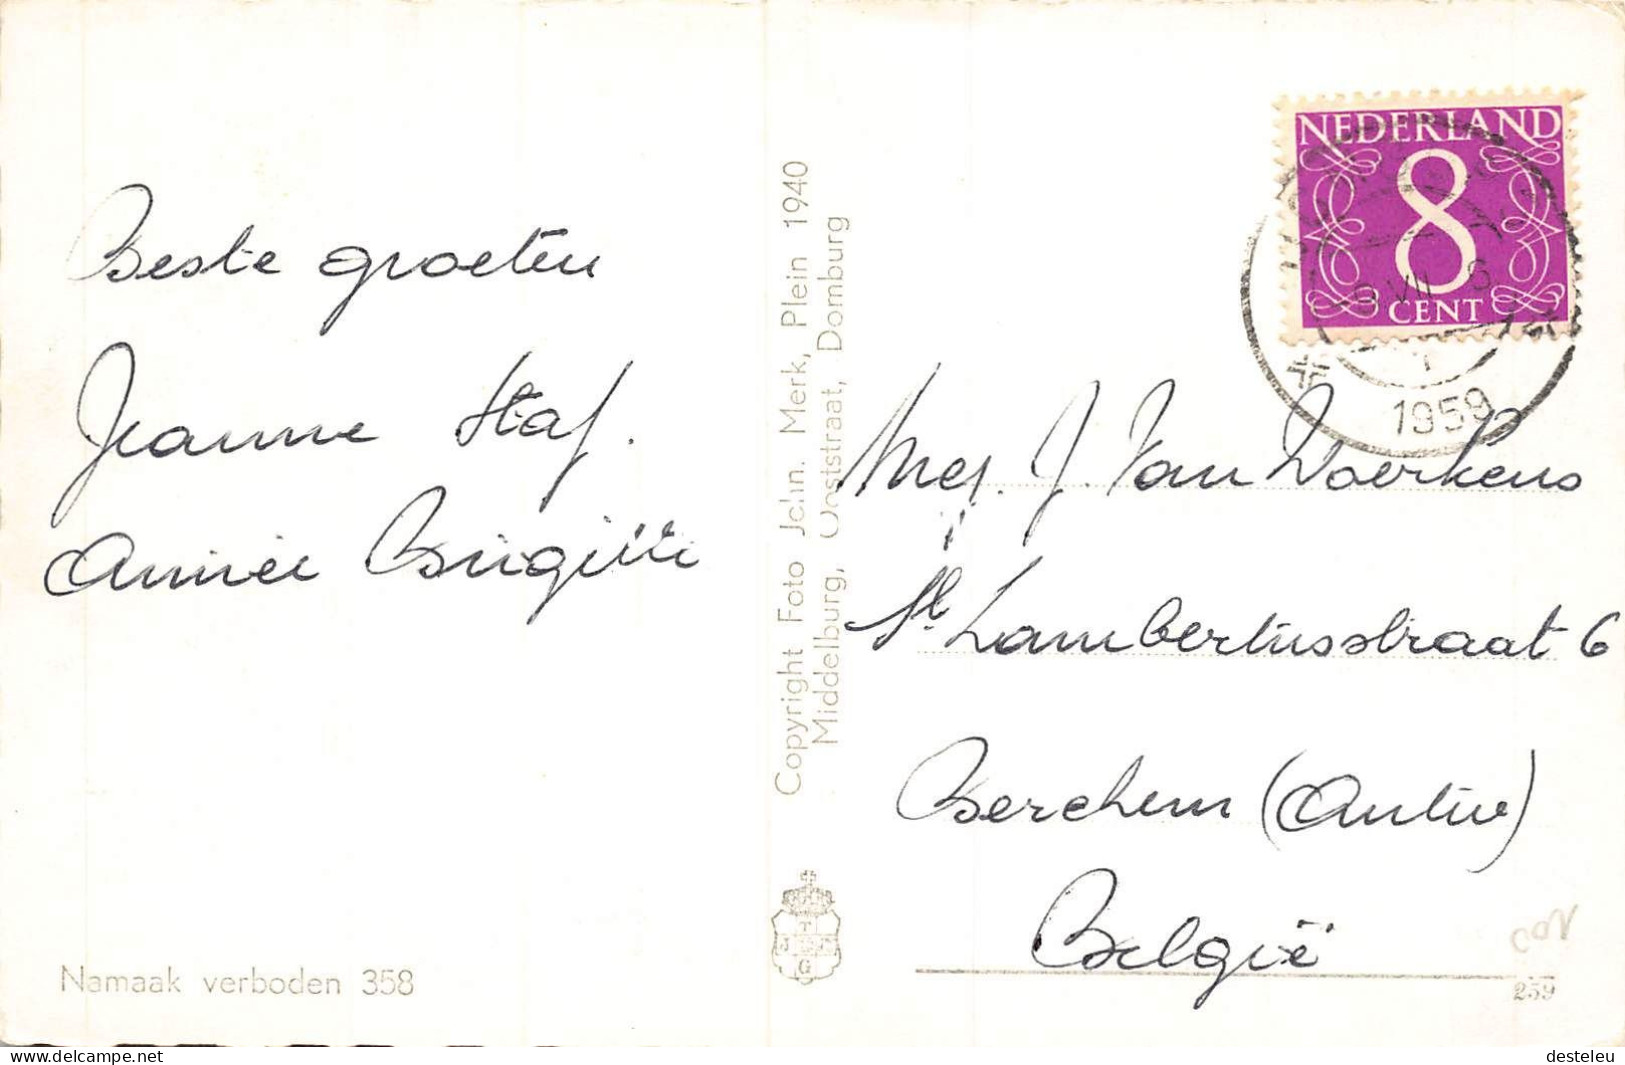 Beste groeten
Jeanne Staf.
Annie Brigitte
Namaak verboden 358
Copyright Foto John. Merk, Plein 1940
Middelburg, Ooststraat, Domburg
NEDERLAND
8
CENT
VII
1959
J. Van Woerkens
St. Lambertusstraat 6
Berchem (Antw)
België
259
www.delcampe.net
desteleu